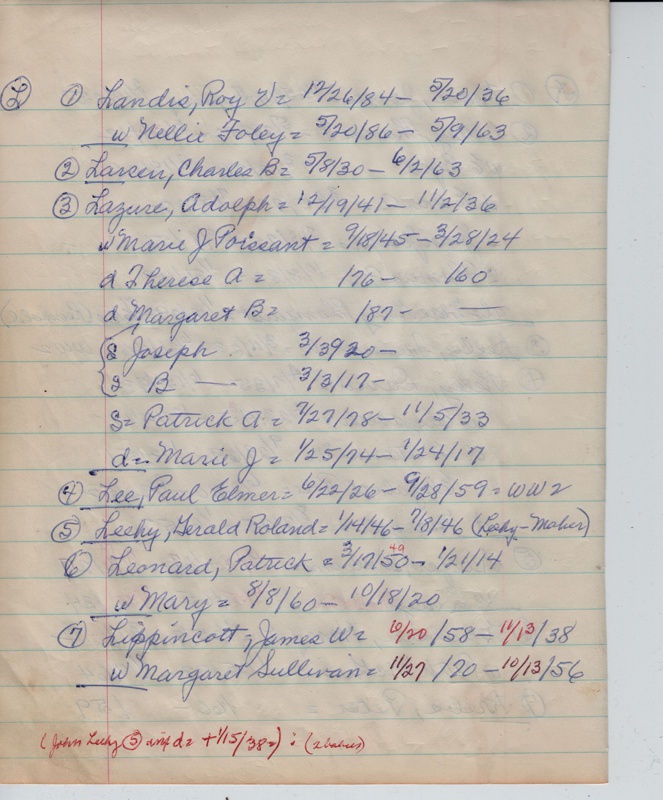 (L) ① Landis, Roy V = 12/26/84 - 5/20/36
w Nellie Foley = 5/20/86 - 5/9/63
② Larsen, Charles B = 5/8/30 - 6/2/63
③ Lazure, Adolph = 12/19/41 - 11/2/36
w Marie J Poissant = 9/18/45 - 3/28/24
d Therese A = 176 - 160
d Margaret B = 187 -
s Joseph 3/3920 -
s B — 3/3/17 -
S = Patrick A = 7/27/78 - 11/5/33
d = Marie J = 1/25/74 - 1/24/17
④ Lee, Paul Elmer = 6/22/26 - 9/28/59 = WW2
⑤ Leehy, Gerald Roland = 1/14/46 - 7/18/46 (Leahy-Maher)
49
⑥ Leonard, Patrick = 3/17/50 - 1/21/14
w Mary = 8/8/60 - 10/18/20
⑦ Lippincott, James W = 10/20/58 - 11/13/38
w Margaret Sullivan = 11/27/70 - 10/13/56
(John Leehy ⑤ inf d = + 1/15/38 =) : (2 babies)